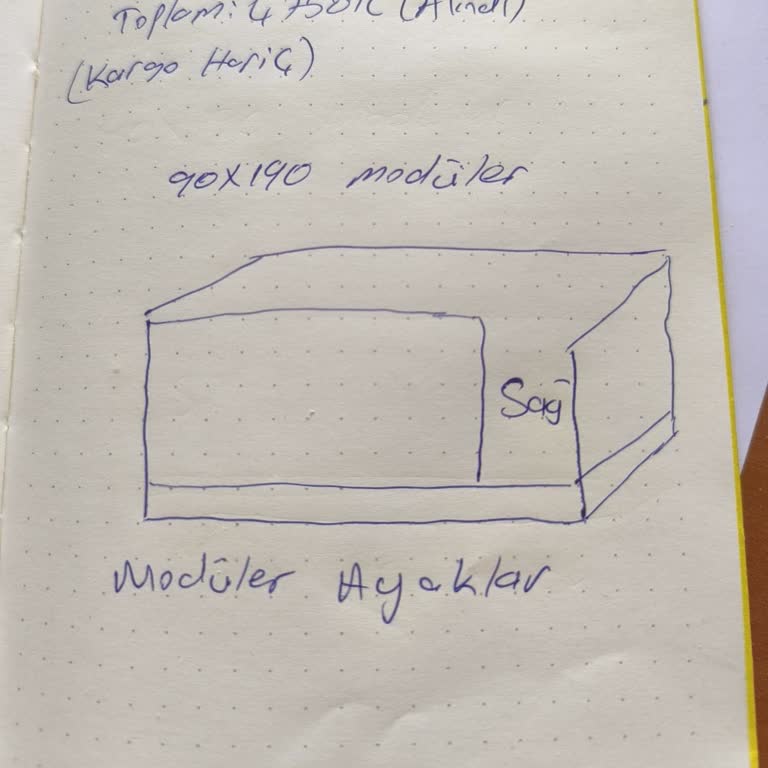 Toplam: 4750TL (Alındı)
(Kargo Hariç)
90X190 modüler
Sağ
Modüler Ayaklar